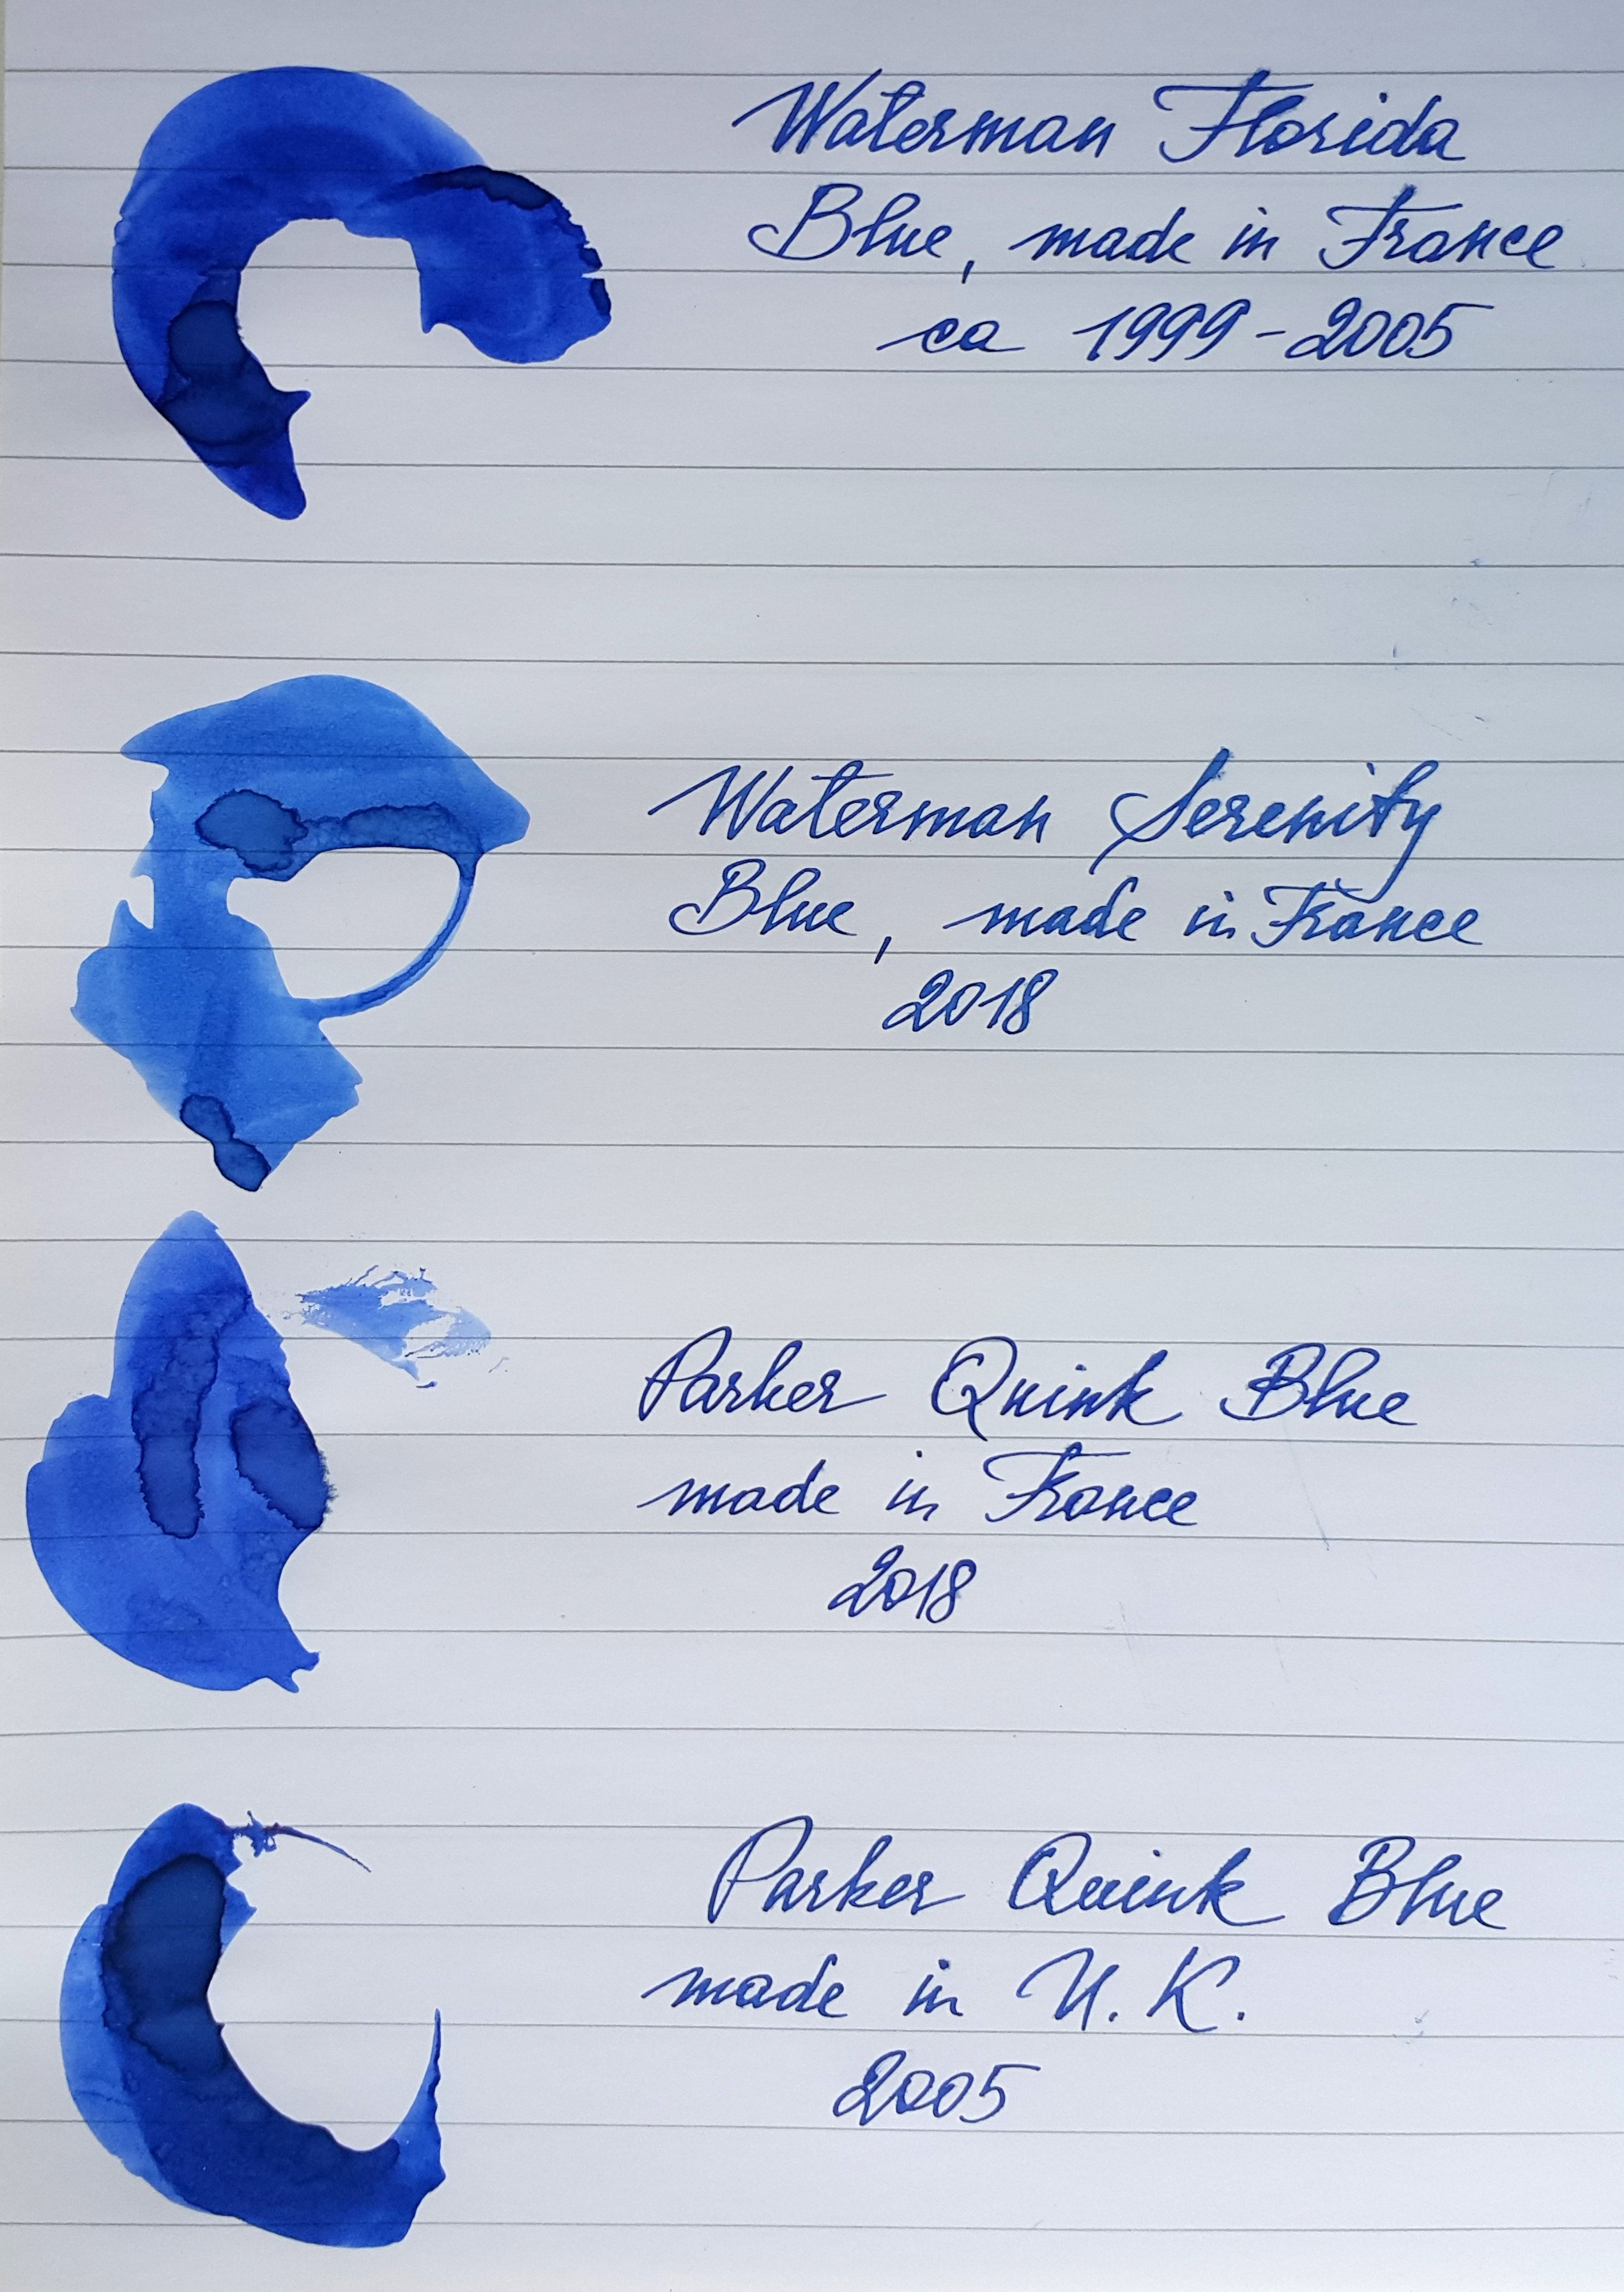 Waterman Florida
Blue, made in France
ca 1999-2005
Waterman Serenity
Blue, made in France
2018
Parker Quink Blue
made in France
2018
Parker Quink Blue
made in U.K.
2005